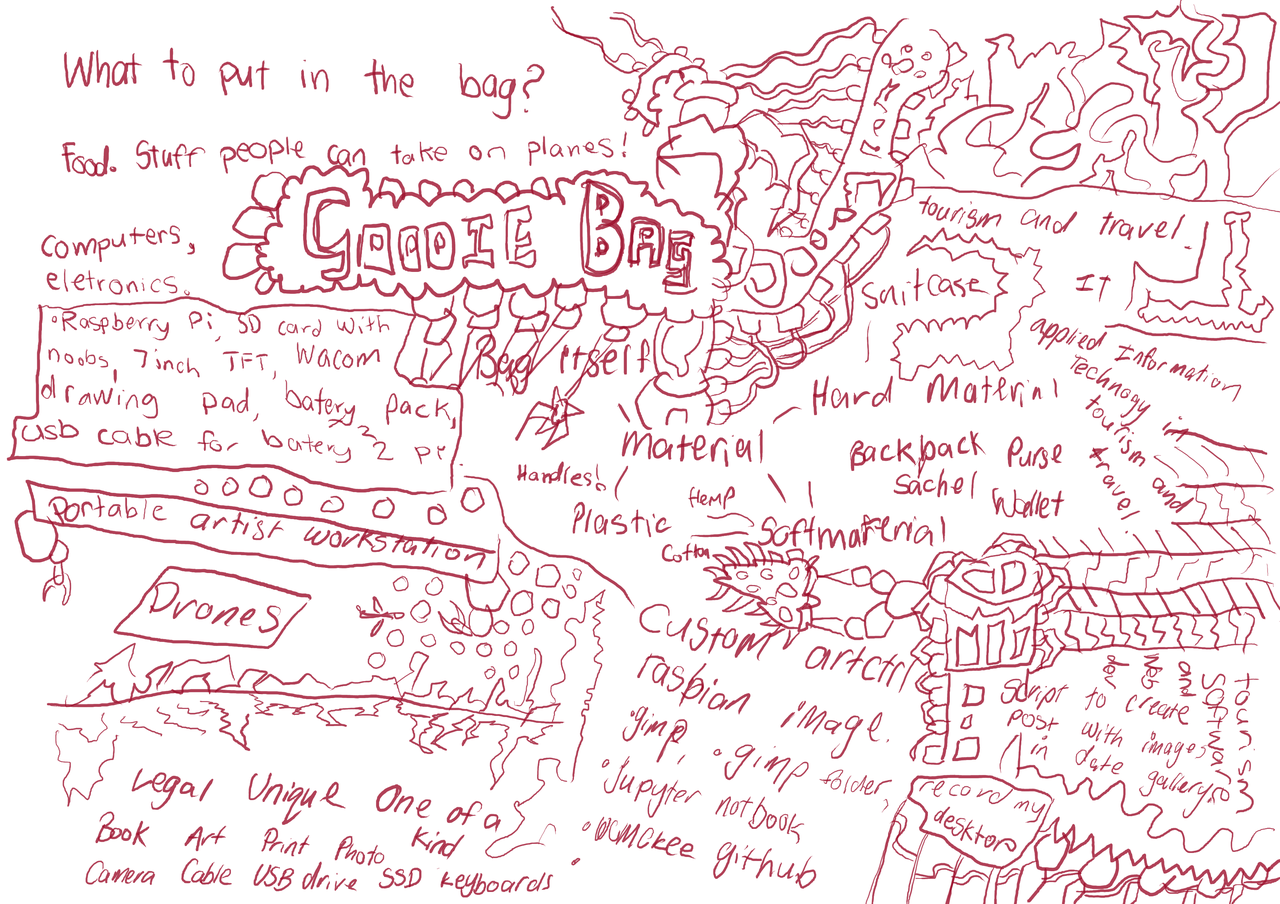 What to put in the bag?
Food. Stuff people can take on planes!
GOODIE BAG
computers,
eletronics.
Raspberry Pi, SD card with
noobs, 7inch TFT, Wacom
drawing pad, batery pack,
usb cable for batery 2 pi.
Portable artist workstation
Drones
Bag itself
Material
Handles!
Plastic
Hemp
Cotton
Softmaterial
Hard Material
Backpack Purse
Sachel Wallet
tourism and travel.
Suitcase
IT
applied Information
Technology in
tourism and
travel
Custom artctrl
raspian image.
gimp, gimp folder,
Jupyter notbook
WCMCkee github
Script to create
post with images
in date gallery
web
dev
and
Software
record my
desktop
Legal Unique One of a
Kind
Book Art Print Photo
Camera Cable USB drive SSD keyboards